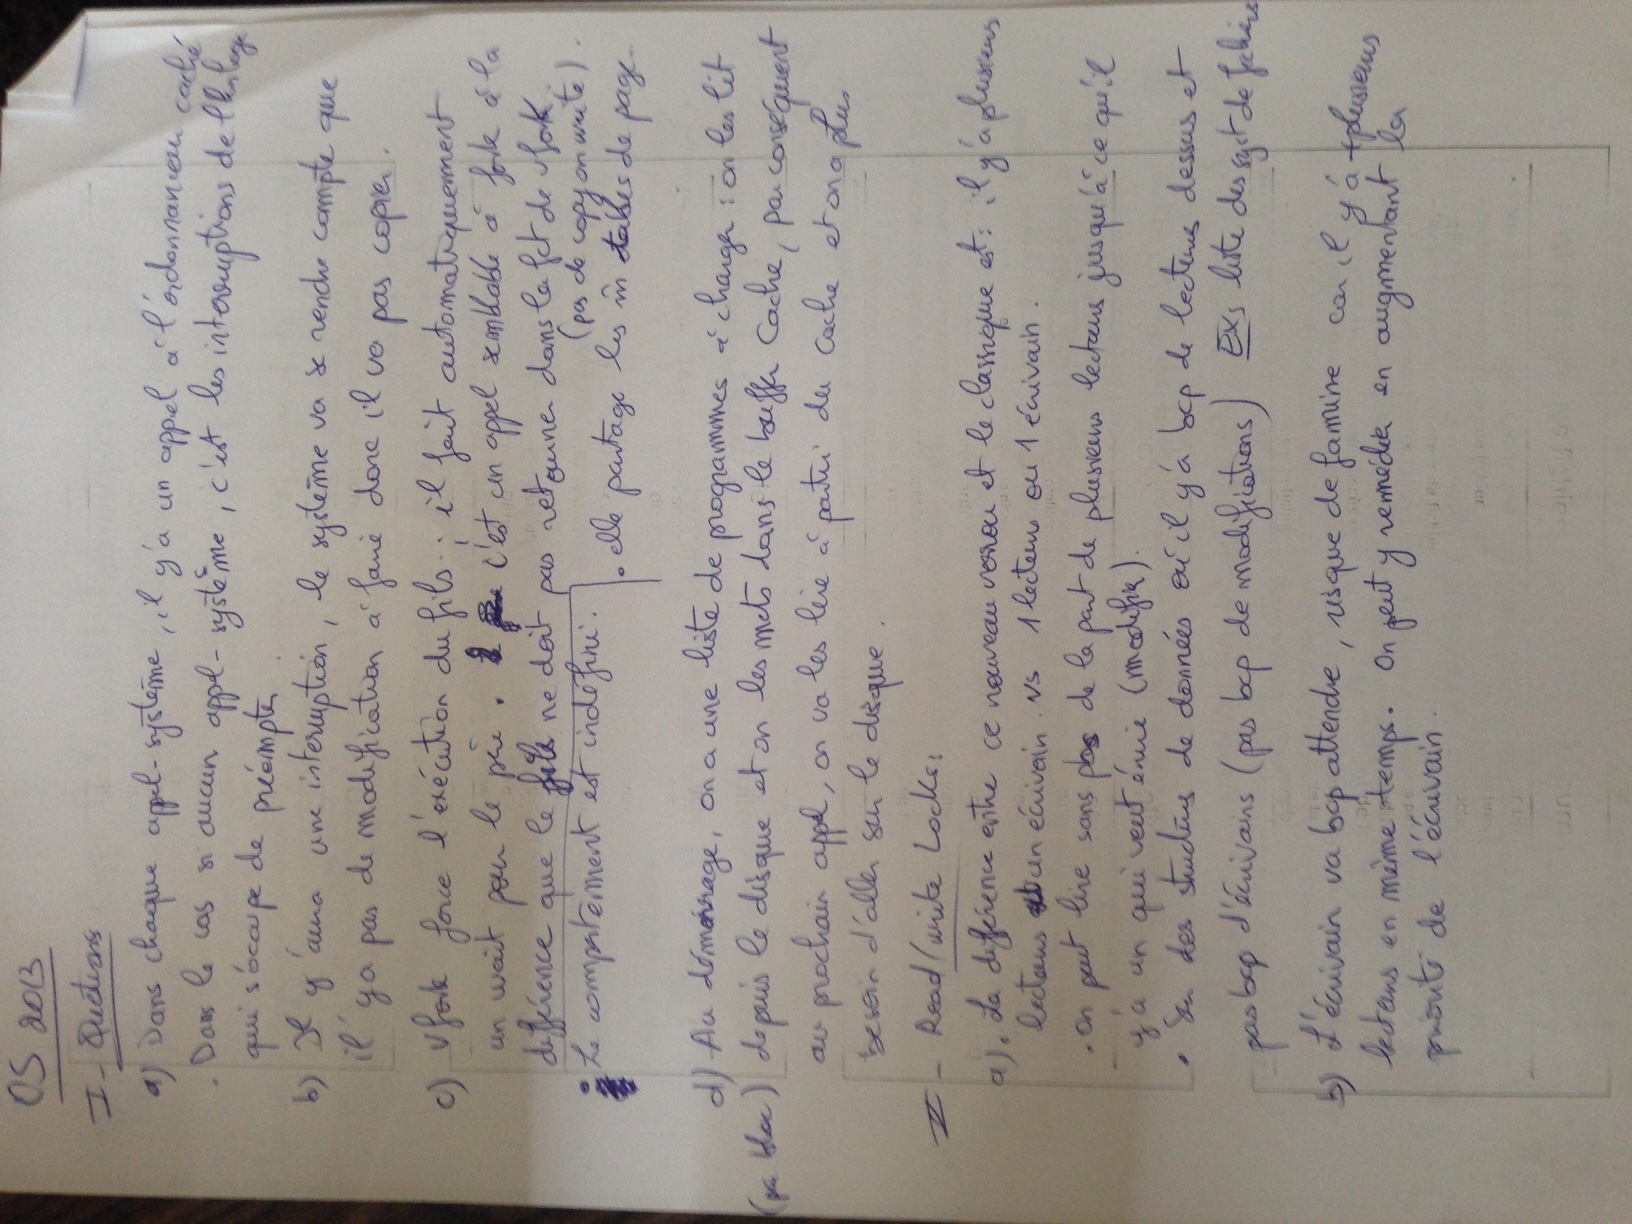 OS 2013
I - Quetions
a) Dans chaque appel-système, il y'a un appel à l'ordonnanceur caché
. Dans le cas si aucun appel-système, c'est les interruptions de l'horloge
qui s'occupe de préempter
b) Il y'aura une interruption, le système va se rendre compte que
il y a pas de modification à faire donc il va pas copier.
c) vfork force l'exécution du fils ; il fait automatiquement
un wait pour le père. c'est un appel semblable à fork à la
différence que le fils ne doit pas retourner dans la fct de vfork.
(pas de copy on write).
. Le comportement est indéfini.
. elle partage les m̂ tables de page.
d) Au démarrage, on a une liste de programmes à charger : on les lit
(par bloc) depuis le disque et on les mets dans le buffer cache, par conséquent
au prochain appel, on va les lire à partir du cache et on a plus
besoin d'aller sur le disque.
II - Read/write Locks:
a). La différence entre ce nouveau verrou et le classique est: il y'a plusieurs
lecteurs un écrivain vs 1 lecteurs ou 1 écrivain.
. On peut lire sans pbs de la part de plusieurs lecteurs jusqu'à ce qu'il
y'a un qui veut écrire (modifier).
. Sur des structures de données où il y'a bcp de lecteurs dessus et
pas bcp d'écrivains (pas bcp de modifications) EX: liste des syst de fichiers
b) L'écrivain va bcp attendre, risque de famine car il y'a +plusieurs
lecteurs en même temps. On peut y remédier en augmentant la
priorité de l'écrivain.